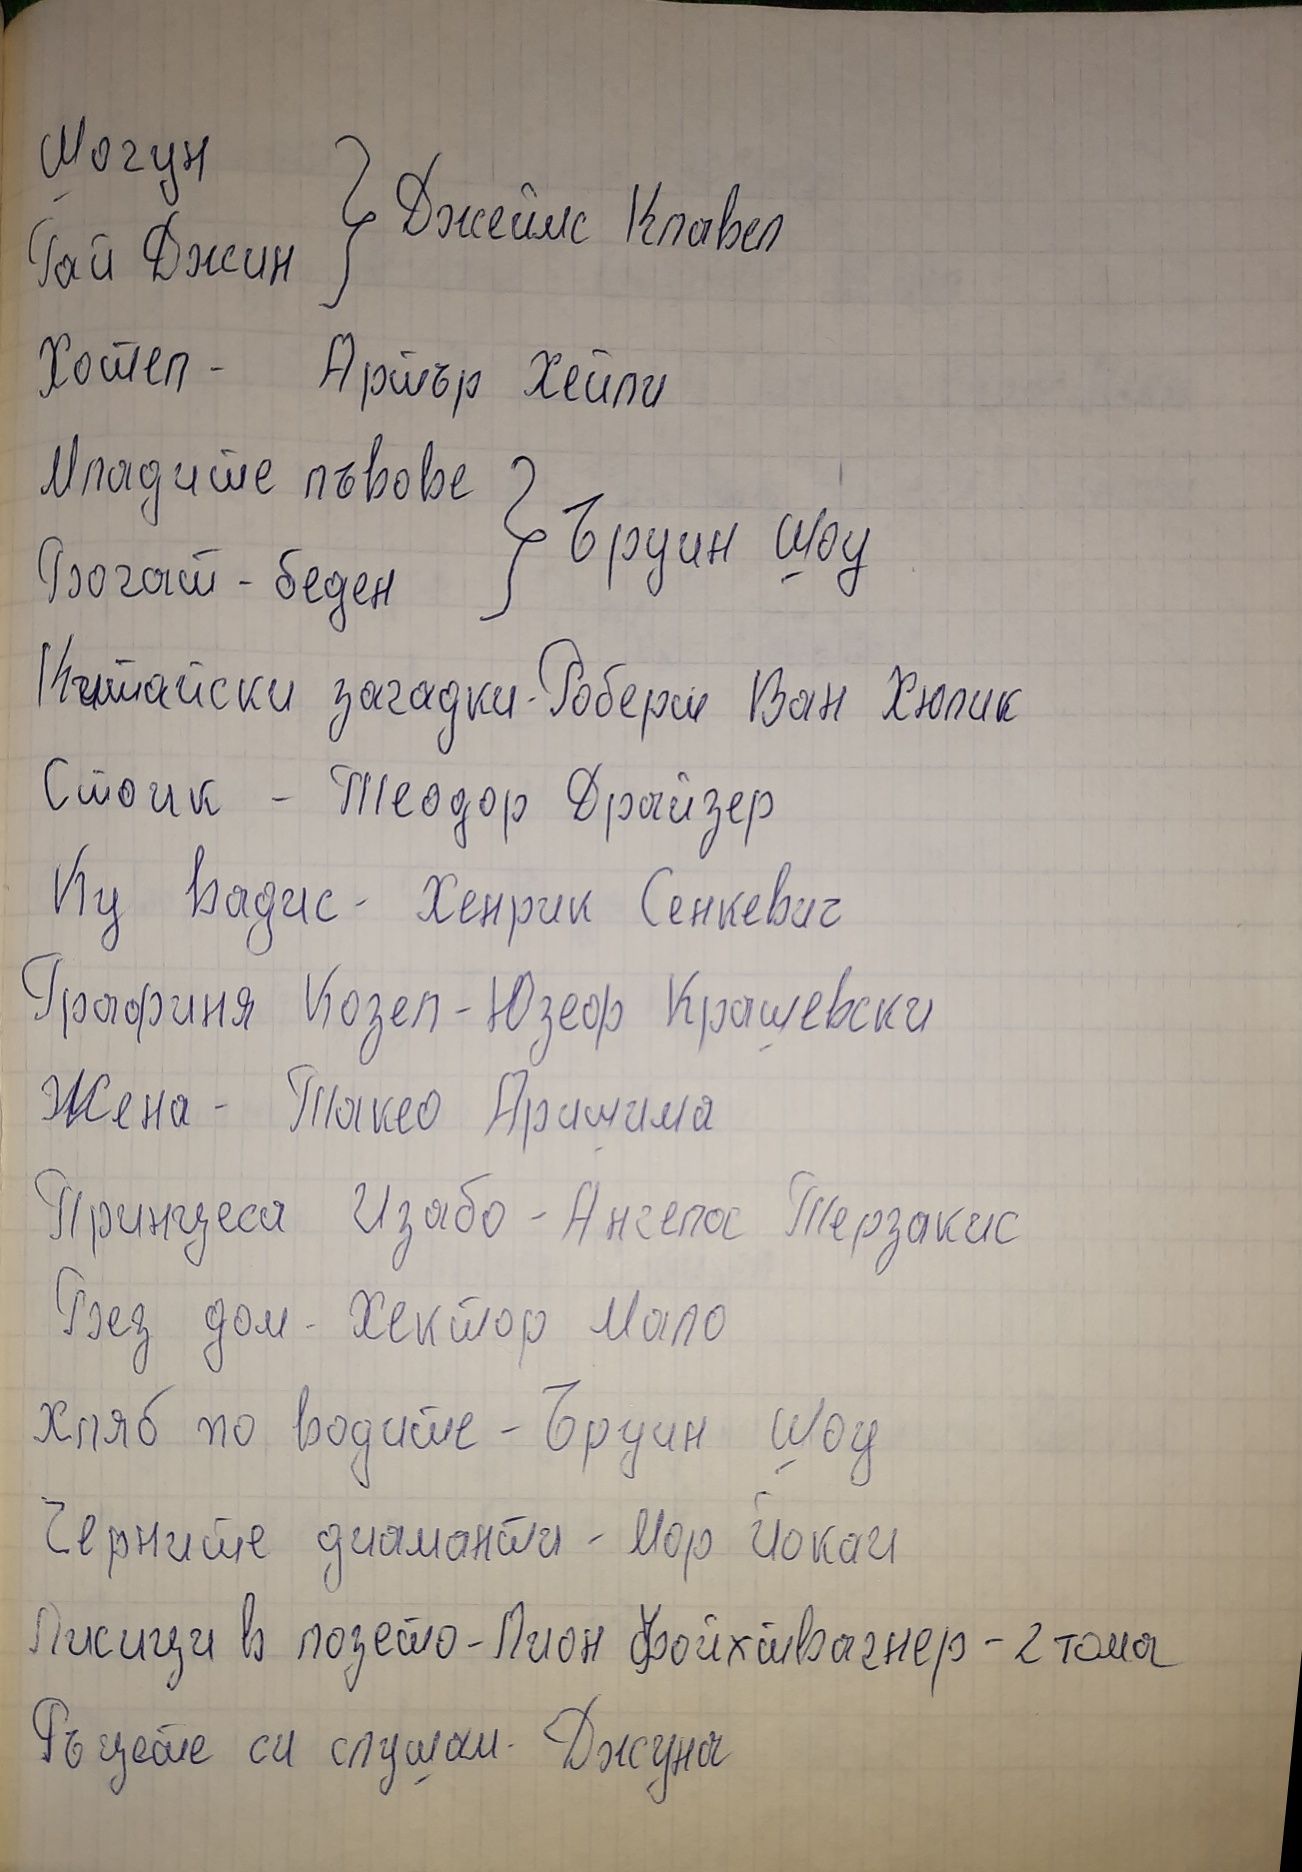 Шогун
Гай Джин } Джеймс Клавел
Хотел - Артър Хейли
Младите лъвове
Богат - беден } Ъруин Шоу
Китайски загадки - Роберт Ван Хюлик
Стоик - Теодор Драйзер
Ку вадис - Хенрик Сенкевич
Графиня Козел - Юзеф Крашевски
Жена - Такео Аришима
Принцеса Изабо - Ангелос Терзакис
Без дом - Хектор Мало
Хляб по водите - Ъруин Шоу
Черните диаманти - Мор Йокаи
Лисици в лозето - Лион Фойхтвагнер - 2 тома
Ръцете си слушам - Джуна